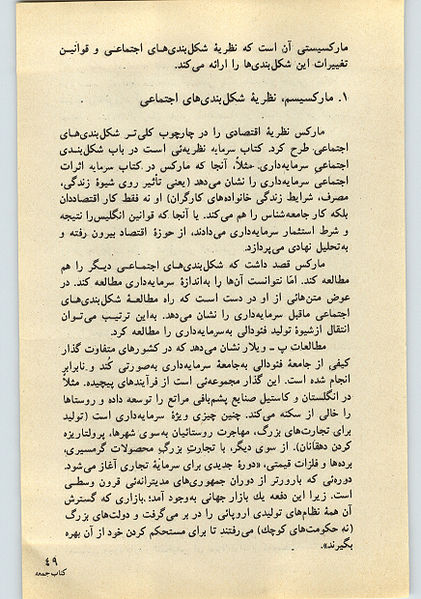 مارکسیستی آن است که نظریهٔ شکل‌بندی‌های اجتماعی و قوانین
تغییرات این شکل‌بندی‌ها را ارائه می‌کند.
۱. مارکسیسم، نظریهٔ شکل‌بندی‌های اجتماعی
مارکس نظریهٔ اقتصادی را در چارچوب کلی‌تر شکل‌بندی‌های
اجتماعی طرح کرد. کتاب سرمایه نظریه‌ئی است در باب شکل‌بندی
اجتماعی سرمایه‌داری. مثلاً، آنجا که مارکس در کتاب سرمایه اثرات
اجتماعی سرمایه‌داری را نشان می‌دهد (یعنی تأثیر روی شیوهٔ زندگی،
مصرف، شرایط زندگی خانواده‌های کارگران) او نه فقط کار اقتصاددان
بلکه کار جامعه‌شناس را هم می‌کند. یا آنجا که قوانین انگلیس را نتیجه
و شرط استثمار سرمایه‌داری می‌دادند، از حوزهٔ اقتصاد بیرون رفته و
به‌تحلیل نهادی می‌پردازد.
مارکس قصد داشت که شکل‌بندی‌های اجتماعی دیگر را هم
مطالعه کند. امّا نتوانست آن‌ها را به‌اندازهٔ سرمایه‌داری مطالعه کند. در
عوض متن‌هائی از او در دست است که راه مطالعهٔ شکل‌بندی‌های
اجتماعی ماقبل سرمایه‌داری را نشان می‌دهد. به‌این ترتیب می‌توان
انتقال ازشیوهٔ تولید فئودالی به‌سرمایه‌داری را مطالعه کرد.
مطالعات پ ـ ویلار نشان می‌دهد که در کشورهای متفاوت گذار
کیفی از جامعهٔ فئودالی به‌جامعهٔ سرمایه‌داری به‌صورتی کُند و نابرابر
انجام شده است. این گذار مجموعه‌ئی است از فرآیندهای پیچیده. مثلاً
در انگلستان و کاستیل صنایع پشم‌بافی مراتع را توسعه داده و روستاها
را خالی از سکنه می‌کند. چنین چیزی ویژهٔ سرمایه‌داری است (تولید
برای تجارت‌های بزرگ، مهاجرت روستائیان به‌سوی شهرها، پرولتاریزه
کردن دهقانان). از سوی دیگر، با تجارتِ بزرگِ محصولات گرمسیری،
برده‌ها و فلزات قیمتی، «دورهٔ جدیدی برای سرمایهٔ تجاری آغاز می‌شود.
دوره‌ئی که بارورتر از دوران جمهوری‌های مدیترانه‌ئی قرون وسطی
است. زیرا این دفعه یك بازار جهانی به‌وجود آمد؛ بازاری که گسترش
آن همهٔ نظام‌های تولیدی اروپائی را در بر می‌گرفت و دولت‌های بزرگ
(نه حکومت‌های کوچك) می‌رفتند تا برای مستحکم کردن خود از آن بهره
بگیرند».
۴۹
کتاب جمعه